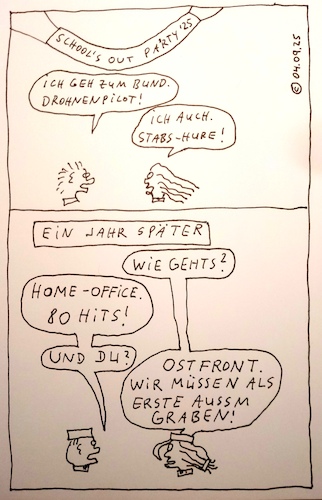 SCHOOL'S OUT PARTY '25
© 04.09.25
ICH GEH ZUM BUND.
DROHNENPILOT!
ICH AUCH.
STABS-HURE!
EIN JAHR SPÄTER
WIE GEHTS?
HOME-OFFICE.
80 HITS!
UND DU?
OSTFRONT.
WIR MÜSSEN ALS
ERSTE AUSSM
GRABEN!